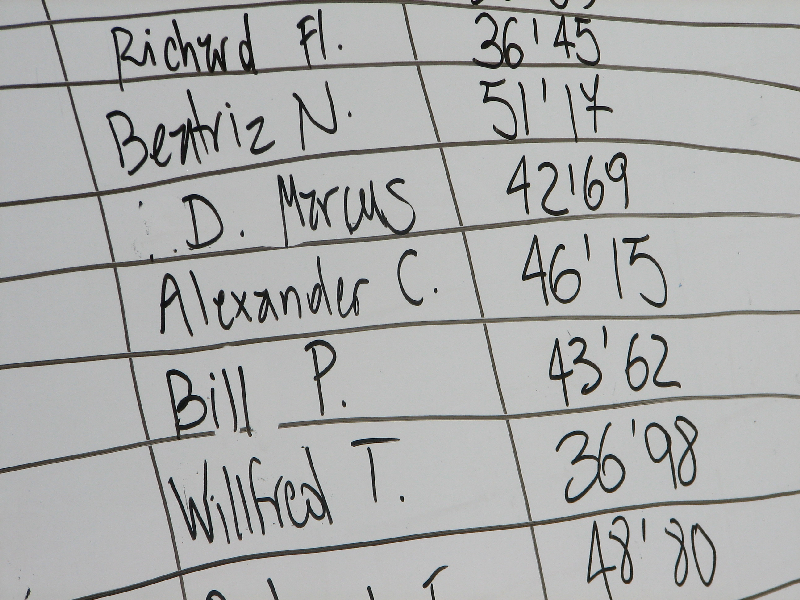 Richard Fl. 36'45
Beatriz N. 51'17
D. Marcus 42'69
Alexander C. 46'15
Bill P. 43'62
Willfred T. 36'98
48'80